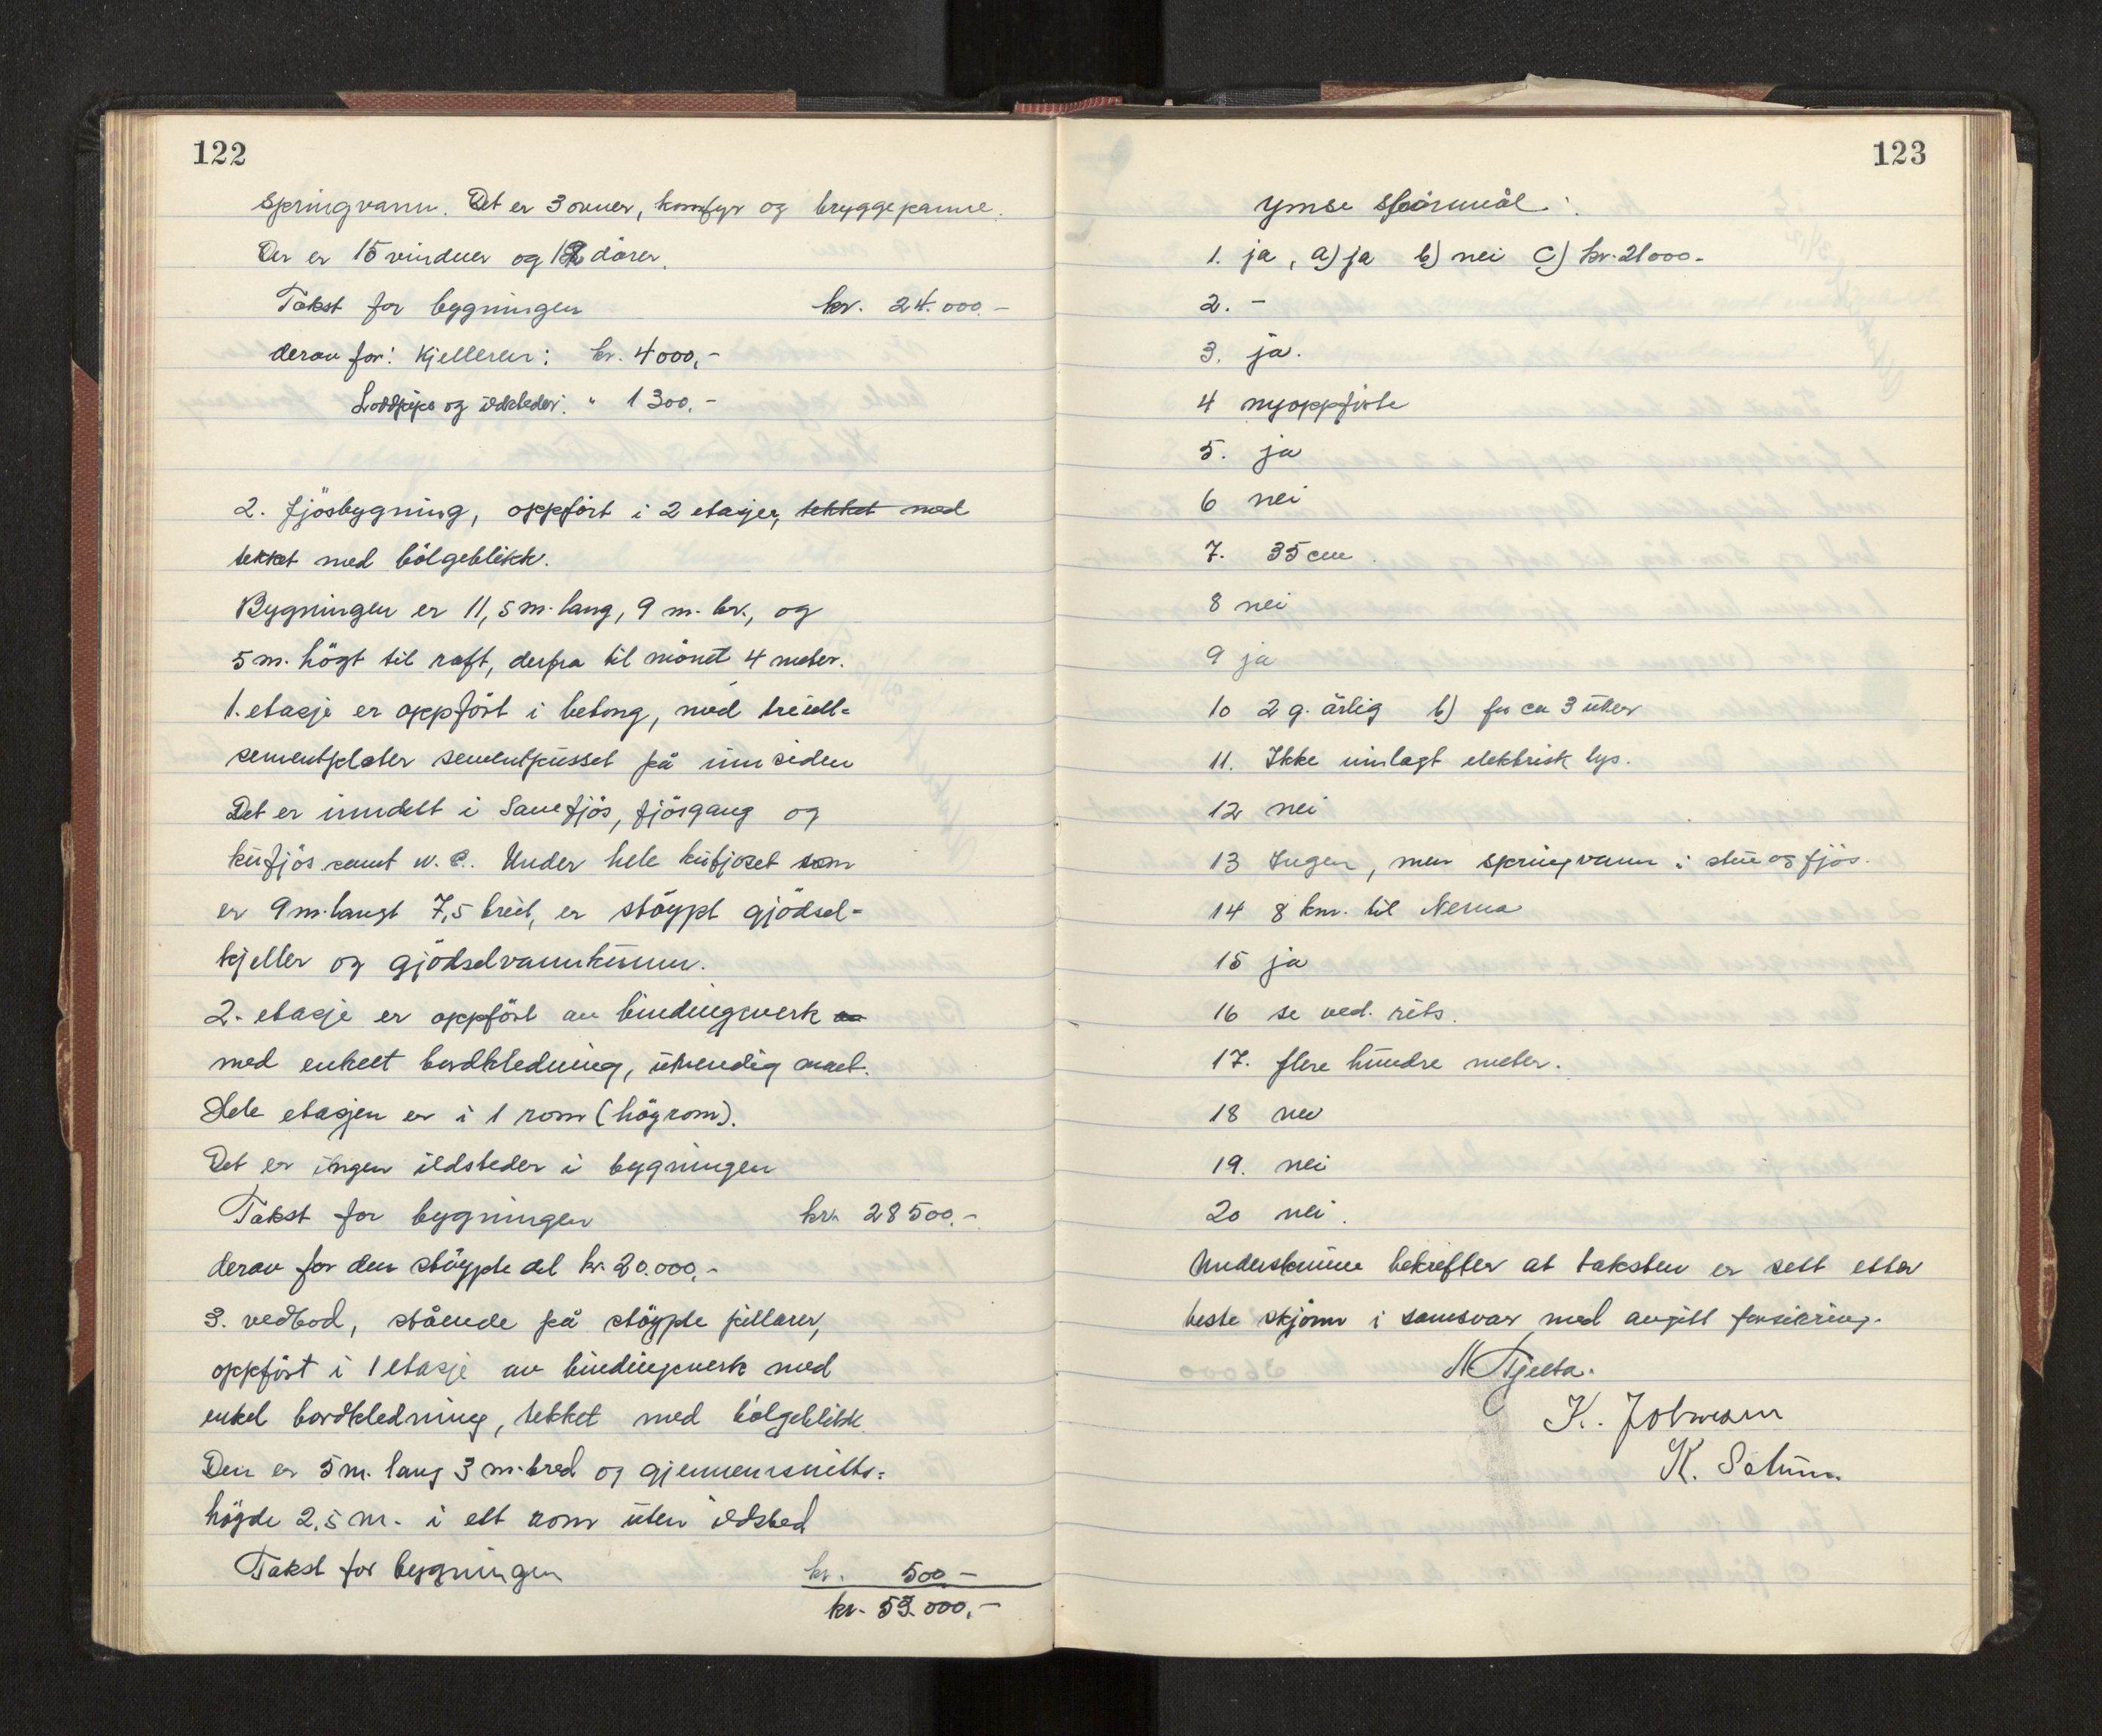 122
springvann. Det er 3 ovner, komfyr og bryggepanne.
Der er 15 vinduer og 12 dörer.
Takst for bygningen kr. 24.000.-
derav for: Kjelleren: kr. 4000,-
og ildsteder: " 1300,-
2. fjösbygning, oppfört i 2 etasjer, tekket med
tekket med bölgeblikk.
Bygningen er 11,5 m. lang, 9 m. br., og
5 m. högt til raft, derfra til mönet 4 meter.
1. etasje er oppfört i betong, med treull-
sementplater sementpusset på innsiden
Det er inndelt i Sauefjös, fjösgang og
kufjös samt w.c. Under hele kufjoset som
er 9 m. langt 7,5 breit, er stöypt gjödsel-
kjeller og gjödselvannkumm.
2. etasje er oppfört av bindingsverk
med enkelt bordkledning, utvendig malt.
Hele etasjen er i 1 rom (högrom).
Det er ingen ildsteder i bygningen
Takst for bygningen kr. 28500.-
derav for den stöypte del kr. 20.000,-
3. vedbod, stående på stöypte pillarer,
oppfört i 1 etasje av bindingsverk med
enkel bordkledning, tekket med bölgeblikk
Den er 5 m. lang 3 m. bred og gjennemsnitts-
högde 2,5 m. i ett rom uten ildsted
Takst for bygningen kr. 500.-
kr. 53.000,-
123
Ymse spörsmål:
1. ja, a) ja b) nei c) kr. 21000.-
2. -
3. ja.
4 nyoppförte
5. ja
6 nei
7. 35 cm.
8 nei
9 ja
10 2 g. årlig b) for ca 3 uker
11. Ikke innlagt elektrisk lys.
12 nei
13 Ingen, men springvann i stue og fjös.
14 8 km. til Nerua
15 ja
16 se ved. riss.
17. flere hundre meter.
18 nei
19. nei
20 nei.
Underskrivne bekrefter at taksten er sett etter
beste skjönn i samsvar med avgitt forsikring.
N. Tjelta.
K. Jobmann
K. Selum.